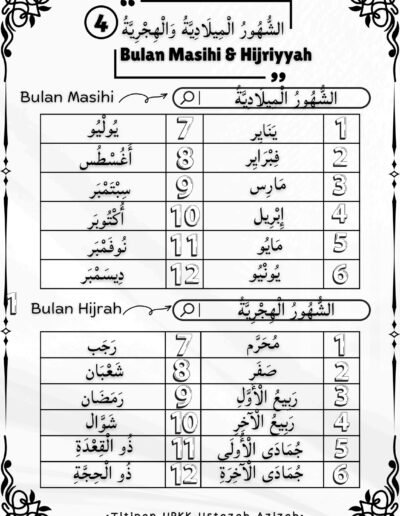 4
الشُّهُورُ الْمِيلَادِيَّةُ وَالْهِجْرِيَّةُ
Bulan Masihi & Hijriyyah
Bulan Masihi
الشُّهُورُ الْمِيلَادِيَّةُ
1 يَنَايِر 7 يُولْيُو
2 فِبْرَايِر 8 أَغُسْطُس
3 مَارِس 9 سِبْتَمْبَر
4 إِبْرِيل 10 أُكْتُوبَر
5 مَايُو 11 نُوفَمْبَر
6 يُونْيُو 12 دِيسَمْبَر
1
Bulan Hijrah
الشُّهُورُ الْهِجْرِيَّةُ
1 مُحَرَّم 7 رَجَب
2 صَفَر 8 شَعْبَان
3 رَبِيعُ الْأَوَّل 9 رَمَضَان
4 رَبِيعُ الْآخِر 10 شَوَّال
5 جُمَادَى الْأُولَى 11 ذُو الْقِعْدَةِ
6 جُمَادَى الْآخِرَةِ 12 ذُو الْحِجَّةِ